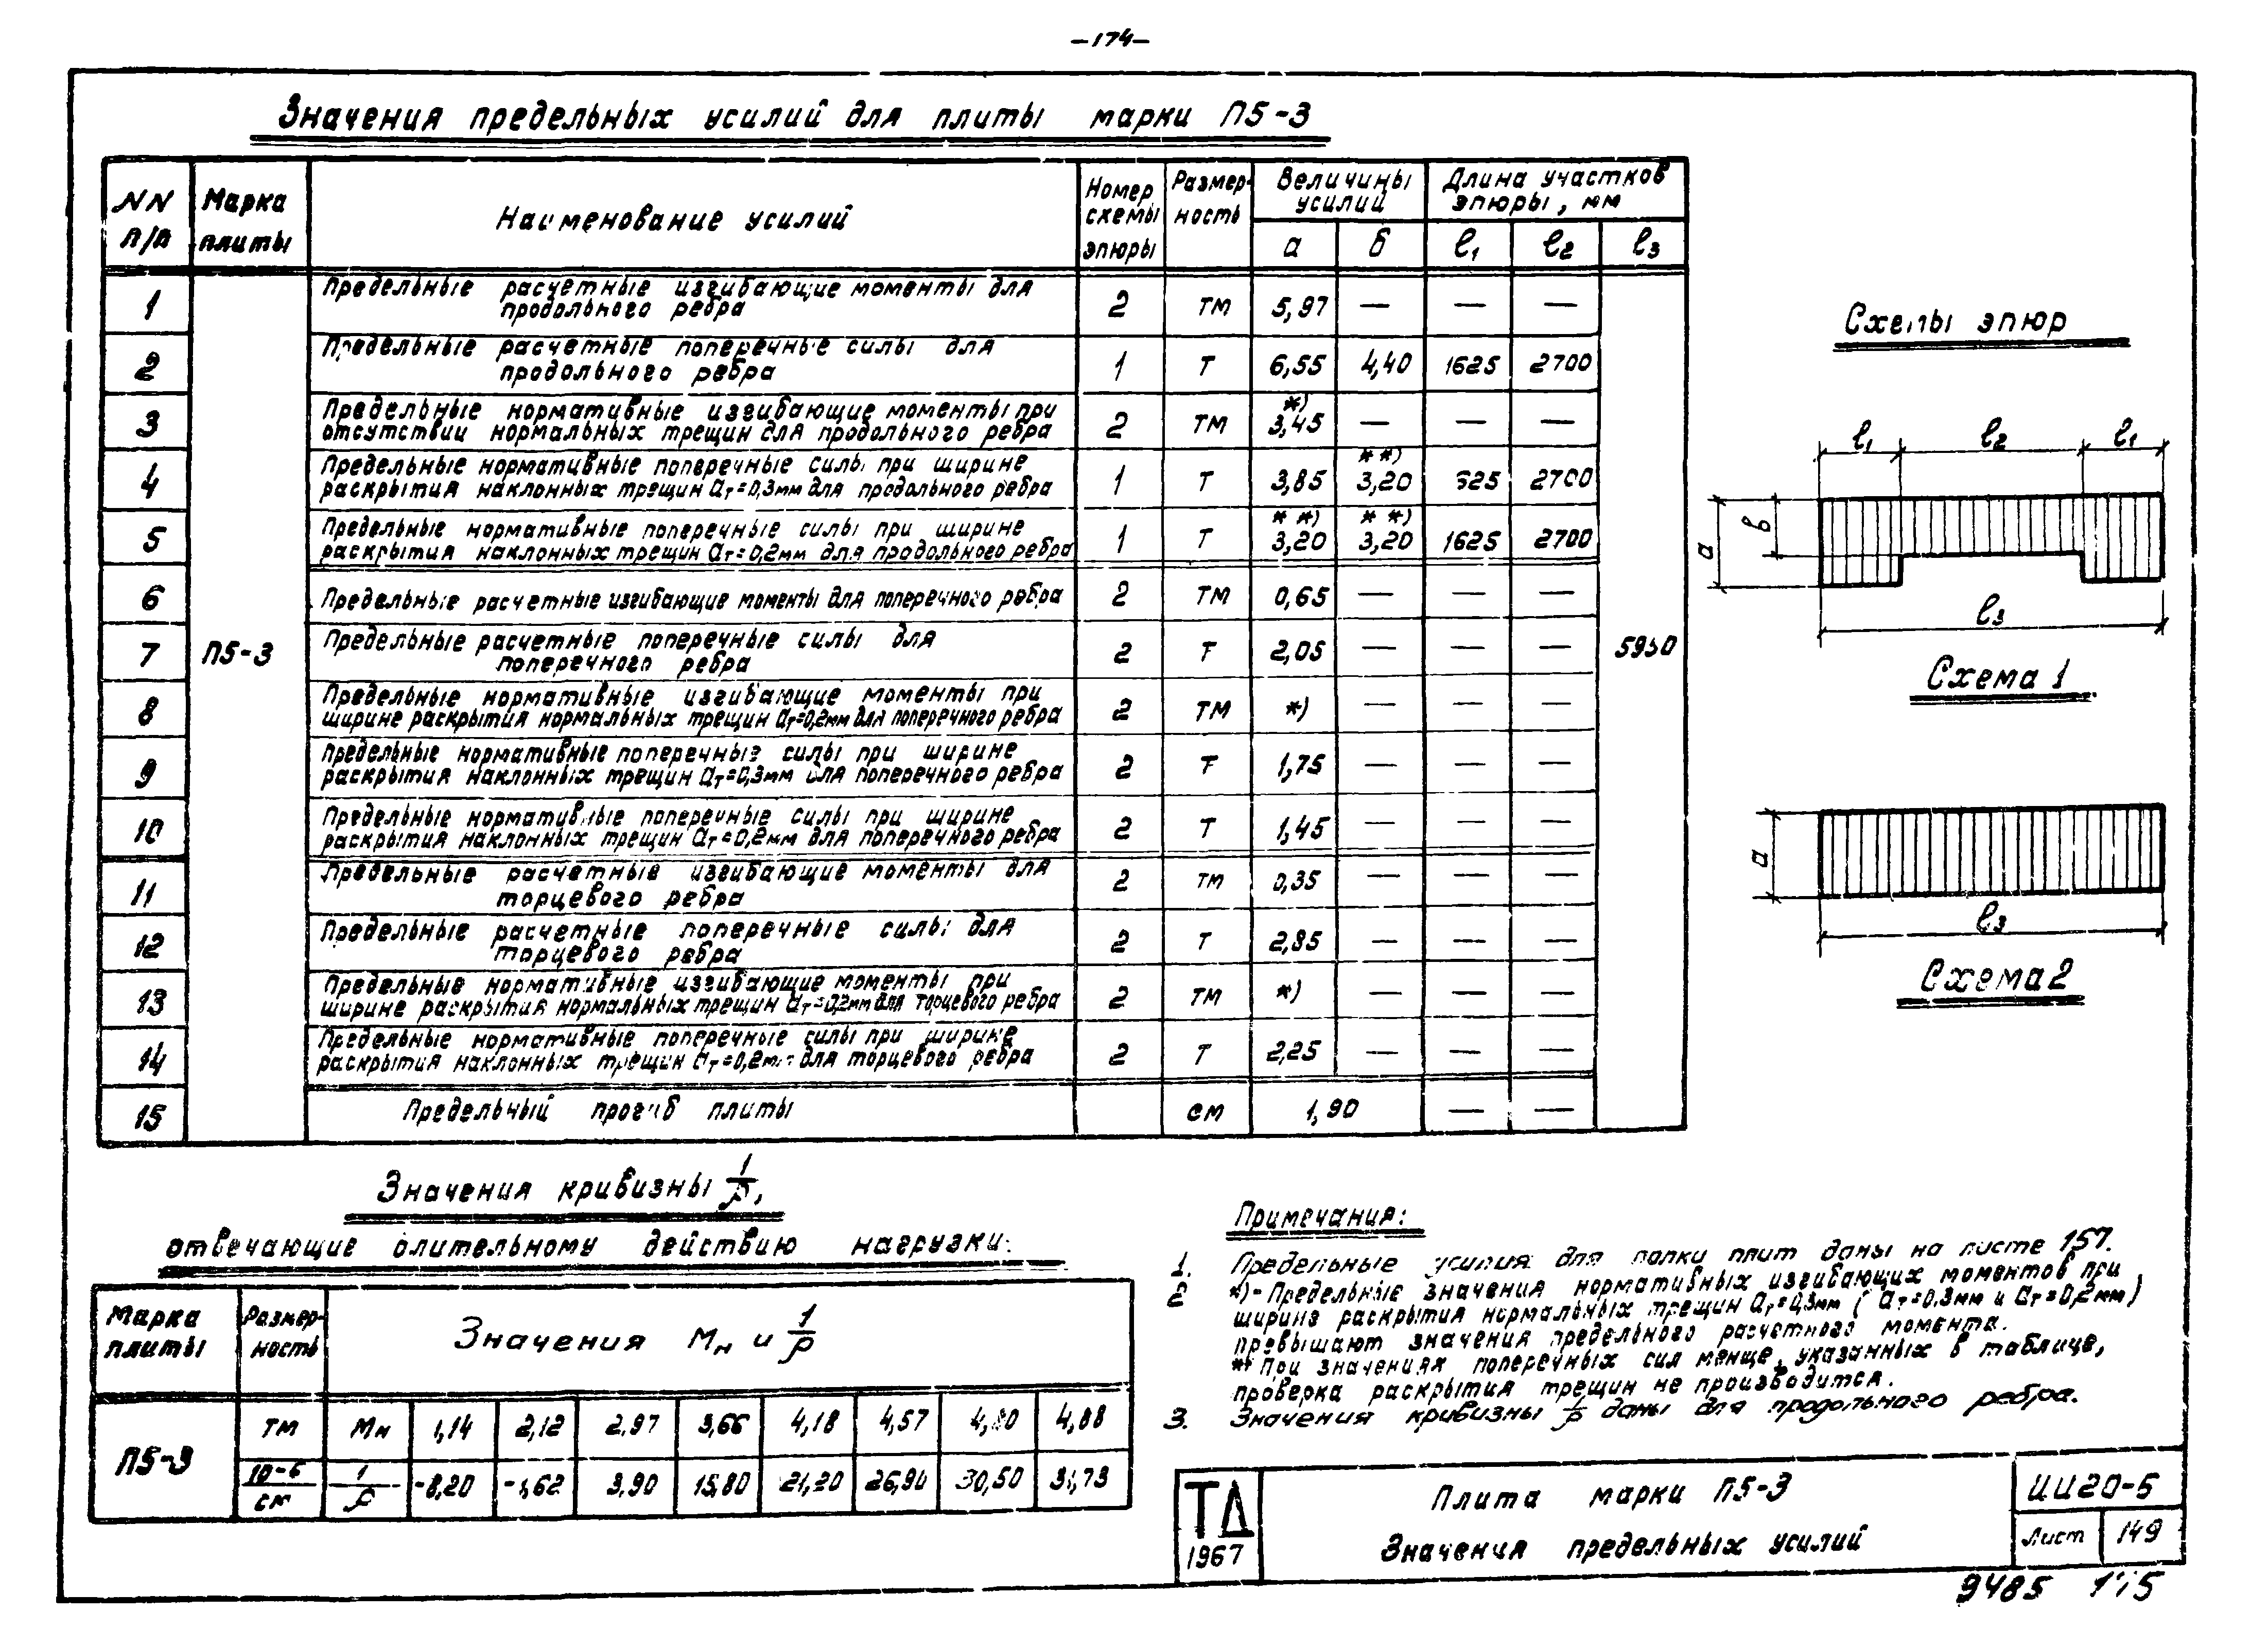 -174-
Значения предельных усилий для плиты марки П5-3
NN п/п | Марка плиты | Наименование усилий | Номер схемы эпюры | Размер-ность | Величины усилий | Длина участков эпюры, мм
а | б | ℓ1 | ℓ2 | ℓ3
1 | Предельные расчетные изгибающие моменты для продольного ребра | 2 | тм | 5,97 | — | — | —
2 | Предельные расчетные поперечные силы для продольного ребра | 1 | т | 6,55 | 4,40 | 1625 | 2700
3 | Предельные нормативные изгибающие моменты при отсутствии нормальных трещин для продольного ребра | 2 | тм | *) 3,45 | — | — | —
4 | Предельные нормативные поперечные силы при ширине раскрытия наклонных трещин aт=0,3мм для продольного ребра | 1 | т | 3,85 | **) 3,20 | 625 | 2700
5 | Предельные нормативные поперечные силы при ширине раскрытия наклонных трещин aт=0,2мм для продольного ребра | 1 | т | **) 3,20 | **) 3,20 | 1625 | 2700
6 | Предельные расчетные изгибающие моменты для поперечного ребра | 2 | тм | 0,65 | — | — | —
7 | П5-3 | Предельные расчетные поперечные силы для поперечного ребра | 2 | т | 2,05 | — | — | — | 5950
8 | Предельные нормативные изгибающие моменты при ширине раскрытия нормальных трещин aт=0,2мм для поперечного ребра | 2 | тм | *) | — | — | —
9 | Предельные нормативные поперечные силы при ширине раскрытия наклонных трещин aт=0,3мм для поперечного ребра | 2 | т | 1,75 | — | — | —
10 | Предельные нормативные поперечные силы при ширине раскрытия наклонных трещин aт=0,2мм для поперечного ребра | 2 | т | 1,45 | — | — | —
11 | Предельные расчетные изгибающие моменты для торцевого ребра | 2 | тм | 0,35 | — | — | —
12 | Предельные расчетные поперечные силы для торцевого ребра | 2 | т | 2,85 | — | — | —
13 | Предельные нормативные изгибающие моменты при ширине раскрытия нормальных трещин aт=0,2мм для торцевого ребра | 2 | тм | *) | — | — | —
14 | Предельные нормативные поперечные силы при ширине раскрытия наклонных трещин aт=0,2мм для торцевого ребра | 2 | т | 2,25 | — | — | —
15 | Предельный прогиб плиты | см | 1,90 | — | —
Схемы эпюр
ℓ1 ℓ2 ℓ1
а в
ℓ3
Схема 1
а
ℓ3
Схема 2
Значения кривизны 1/ρ,
отвечающие длительному действию нагрузки.
Марка плиты | Размер-ность | Значения Мн и 1/ρ
П5-3 | тм | Мн | 1,14 | 2,12 | 2,97 | 3,66 | 4,18 | 4,57 | 4,80 | 4,88
10-6/см | 1/ρ | -8,20 | -1,62 | 3,90 | 15,80 | 21,20 | 26,90 | 30,50 | 31,73
Примечания:
1. Предельные усилия для полки плит даны на листе 157.
2 *)- Предельные значения нормативных изгибающих моментов при
ширине раскрытия нормальных трещин aт=0,3мм (aт=0,3мм и aт=0,2мм)
превышают значения предельного расчетного момента.
** При значениях поперечных сил менще, указанных в таблице,
проверка раскрытия трещин не производится.
3. Значения кривизны 1/ρ даны для продольного ребра.
ТД
1967
Плита марки П5-3
Значения предельных усилий
ИИ20-5
Лист 149
9485